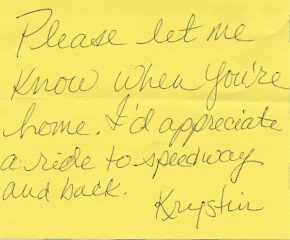 Please let me
Know when you're
home. I'd appreciate
a ride to speedway
and back.
Krystin